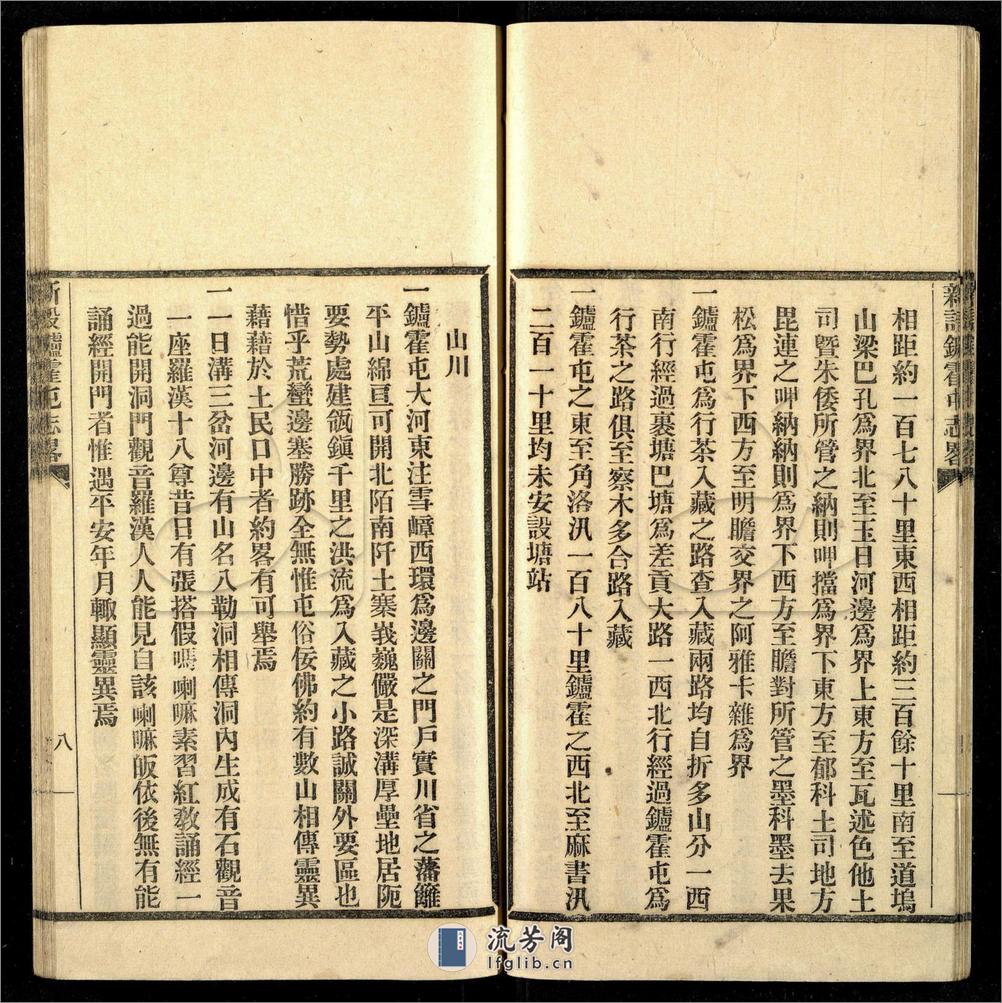 相距約一百七八十里東西相距約三百餘十里南至道塢
山梁巴孔爲界北至玉日河邊爲界上東方至瓦述色他土
司曁朱倭所管之納則呷擋爲界下東方至郁科土司地方
毘連之呷納納則爲界下西方至瞻對所管之墨科墨去果
松爲界下西方至明瞻交界之阿雅卡雜爲界
一鑪霍屯爲行茶入藏之路查入藏兩路均自折多山分一西
南行經過裹塘巴塘爲差貢大路一西北行經過鑪霍屯爲
行茶之路俱至察木多合路入藏
一鑪霍屯之東至角洛汛一百八十里鑪霍之西北至麻書汛
二百一十里均未安設塘站
山川
一鑪霍屯大河東注雪嶂西環爲邊關之門戶實川省之藩籬
平山綿亘可開北陌南阡土寨峩巍儼是深溝厚壘地居阨
要勢處建瓴鎭千里之洪流爲入藏之小路誠關外要區也
惜乎荒蠻邊塞勝跡全無惟屯俗佞佛約有數山相傳靈異
藉藉於土民口中者約畧有可舉焉
一一日溝三岔河邊有山名八勒洞相傳洞內生成有石觀音
一座羅漢十八尊昔日有張搭假嗎喇嘛素習紅敎誦經一
過能開洞門觀音羅漢人人能見自該喇嘛皈依後無有能
誦經開門者惟遇平安年月輙顯靈異焉
新設鑪霍屯志畧
八
流芳阁
lfglib.cn